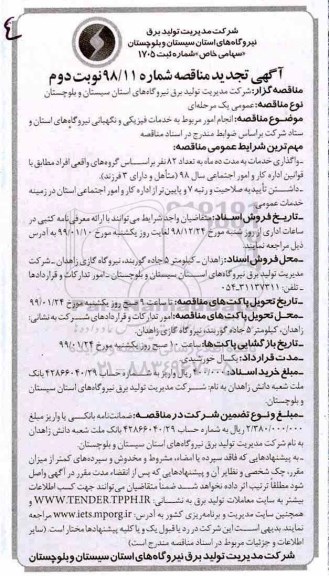 شرکت مدیریت تولید برق
نیروگاه‌های استان سیستان و بلوچستان
«سهامی خاص» شماره ثبت ۱۷۰۵
آگهی تجدید مناقصه شماره ۹۸/۱۱ نوبت دوم
مناقصه گزار: شرکت مدیریت تولید برق نیروگاه‌های استان سیستان و بلوچستان
نوع مناقصه: عمومی یک مرحله‌ای
موضوع مناقصه: انجام امور مربوط به خدمات فیزیکی و نگهبانی نیروگاه‌های استان و
ستاد شرکت براساس ضوابط مندرج در اسناد مناقصه
مهم ترین شرایط عمومی مناقصه:
ـ واگذاری خدمات به مدت ده ماه به تعداد ۸۲ نفر براساس گروه‌های واقعی افراد مطابق با
قوانین اداره کار و امور اجتماعی سال ۹۸ (متأهل و دارای ۲ فرزند).
ـ داشتن تأییدیه صلاحیت و رتبه ۷ و پایین تر از اداره کار و امور اجتماعی استان در زمینه
خدمات عمومی
ـ تاریخ فروش اسناد: متقاضیان واجد شرایط می‌توانند با ارائه معرفی‌نامه کتبی در
ساعات اداری از روز شنبه مورخ ۹۸/۱۲/۲۴ لغایت روز یکشنبه مورخ ۹۹/۰۱/۱۰ به آدرس
ذیل مراجعه نمایند.
ـ محل فروش اسناد: زاهدان ـ کیلومتر ۵ جاده گوربند، نیروگاه گازی زاهدان ـ شرکت
مدیریت تولید برق نیروگاه‌های استان سیستان و بلوچستان ـ امور تدارکات و قراردادها
ـ تلفن: ۳۱۱۳۷۳۱۱-۰۵۴
ـ تاریخ تحویل پاکت‌های مناقصه: تا ساعت ۹ صبح روز یکشنبه مورخ ۹۹/۰۱/۲۴
ـ محل تحویل پاکت‌های مناقصه: امور تدارکات و قراردادهای شرکت به نشانی:
زاهدان، کیلومتر ۵ جاده گوربند، نیروگاه گازی زاهدان.
ـ تاریخ بازگشایی پاکت‌ها: ساعت ۱۰ صبح روز یکشنبه مورخ ۹۹/۰۱/۲۴
ـ مدت قرارداد: یکسال خورشیدی
ـ مبلغ خرید اسناد: ۴۰۰/۰۰۰ ریال واریز به شماره حساب ۴۲۸۶۶۰۴۰/۲۹ بانک
ملت شعبه دانش زاهدان به نام: شرکت مدیریت تولید برق نیروگاه‌های استان سیستان
و بلوچستان.
ـ مبلغ و نوع تضمین شرکت در مناقصه: ضمانت‌نامه بانکی یا واریز مبلغ
۲/۳۸۰/۰۰۰/۰۰۰ ریال به شماره حساب ۴۲۸۶۶۰۴۰/۲۹ بانک ملت شعبه دانش زاهدان
به نام شرکت مدیریت تولید برق نیروگاه‌های استان سیستان و بلوچستان.
ـ به پیشنهادهایی که فاقد سپرده یا امضاء، مشروط و مخدوش و سپرده‌های کمتر از میزان
مقرر، چک شخصی و نظایر آن و پیشنهادهایی که پس از انقضاء مدت مقرر در آگهی واصل
شود مطلقاً ترتیب اثر داده نخواهد شد. ضمناً متقاضیان می‌توانند جهت کسب اطلاعات
بیشتر به سایت معاملات تولید برق به نشانی: WWW.TENDER.TPPH.IR و
همچنین سایت مدیریت و برنامه‌ریزی کشور به آدرس: www.iets.mporg.ir مراجعه
نمایند. بدیهی است این شرکت در رد یا قبول یک و یا کلیه پیشنهادها مختار است. (سایر
اطلاعات و جزئیات مربوط در اسناد مناقصه مندرج است)
شرکت مدیریت تولید برق نیروگاه‌های استان سیستان و بلوچستان